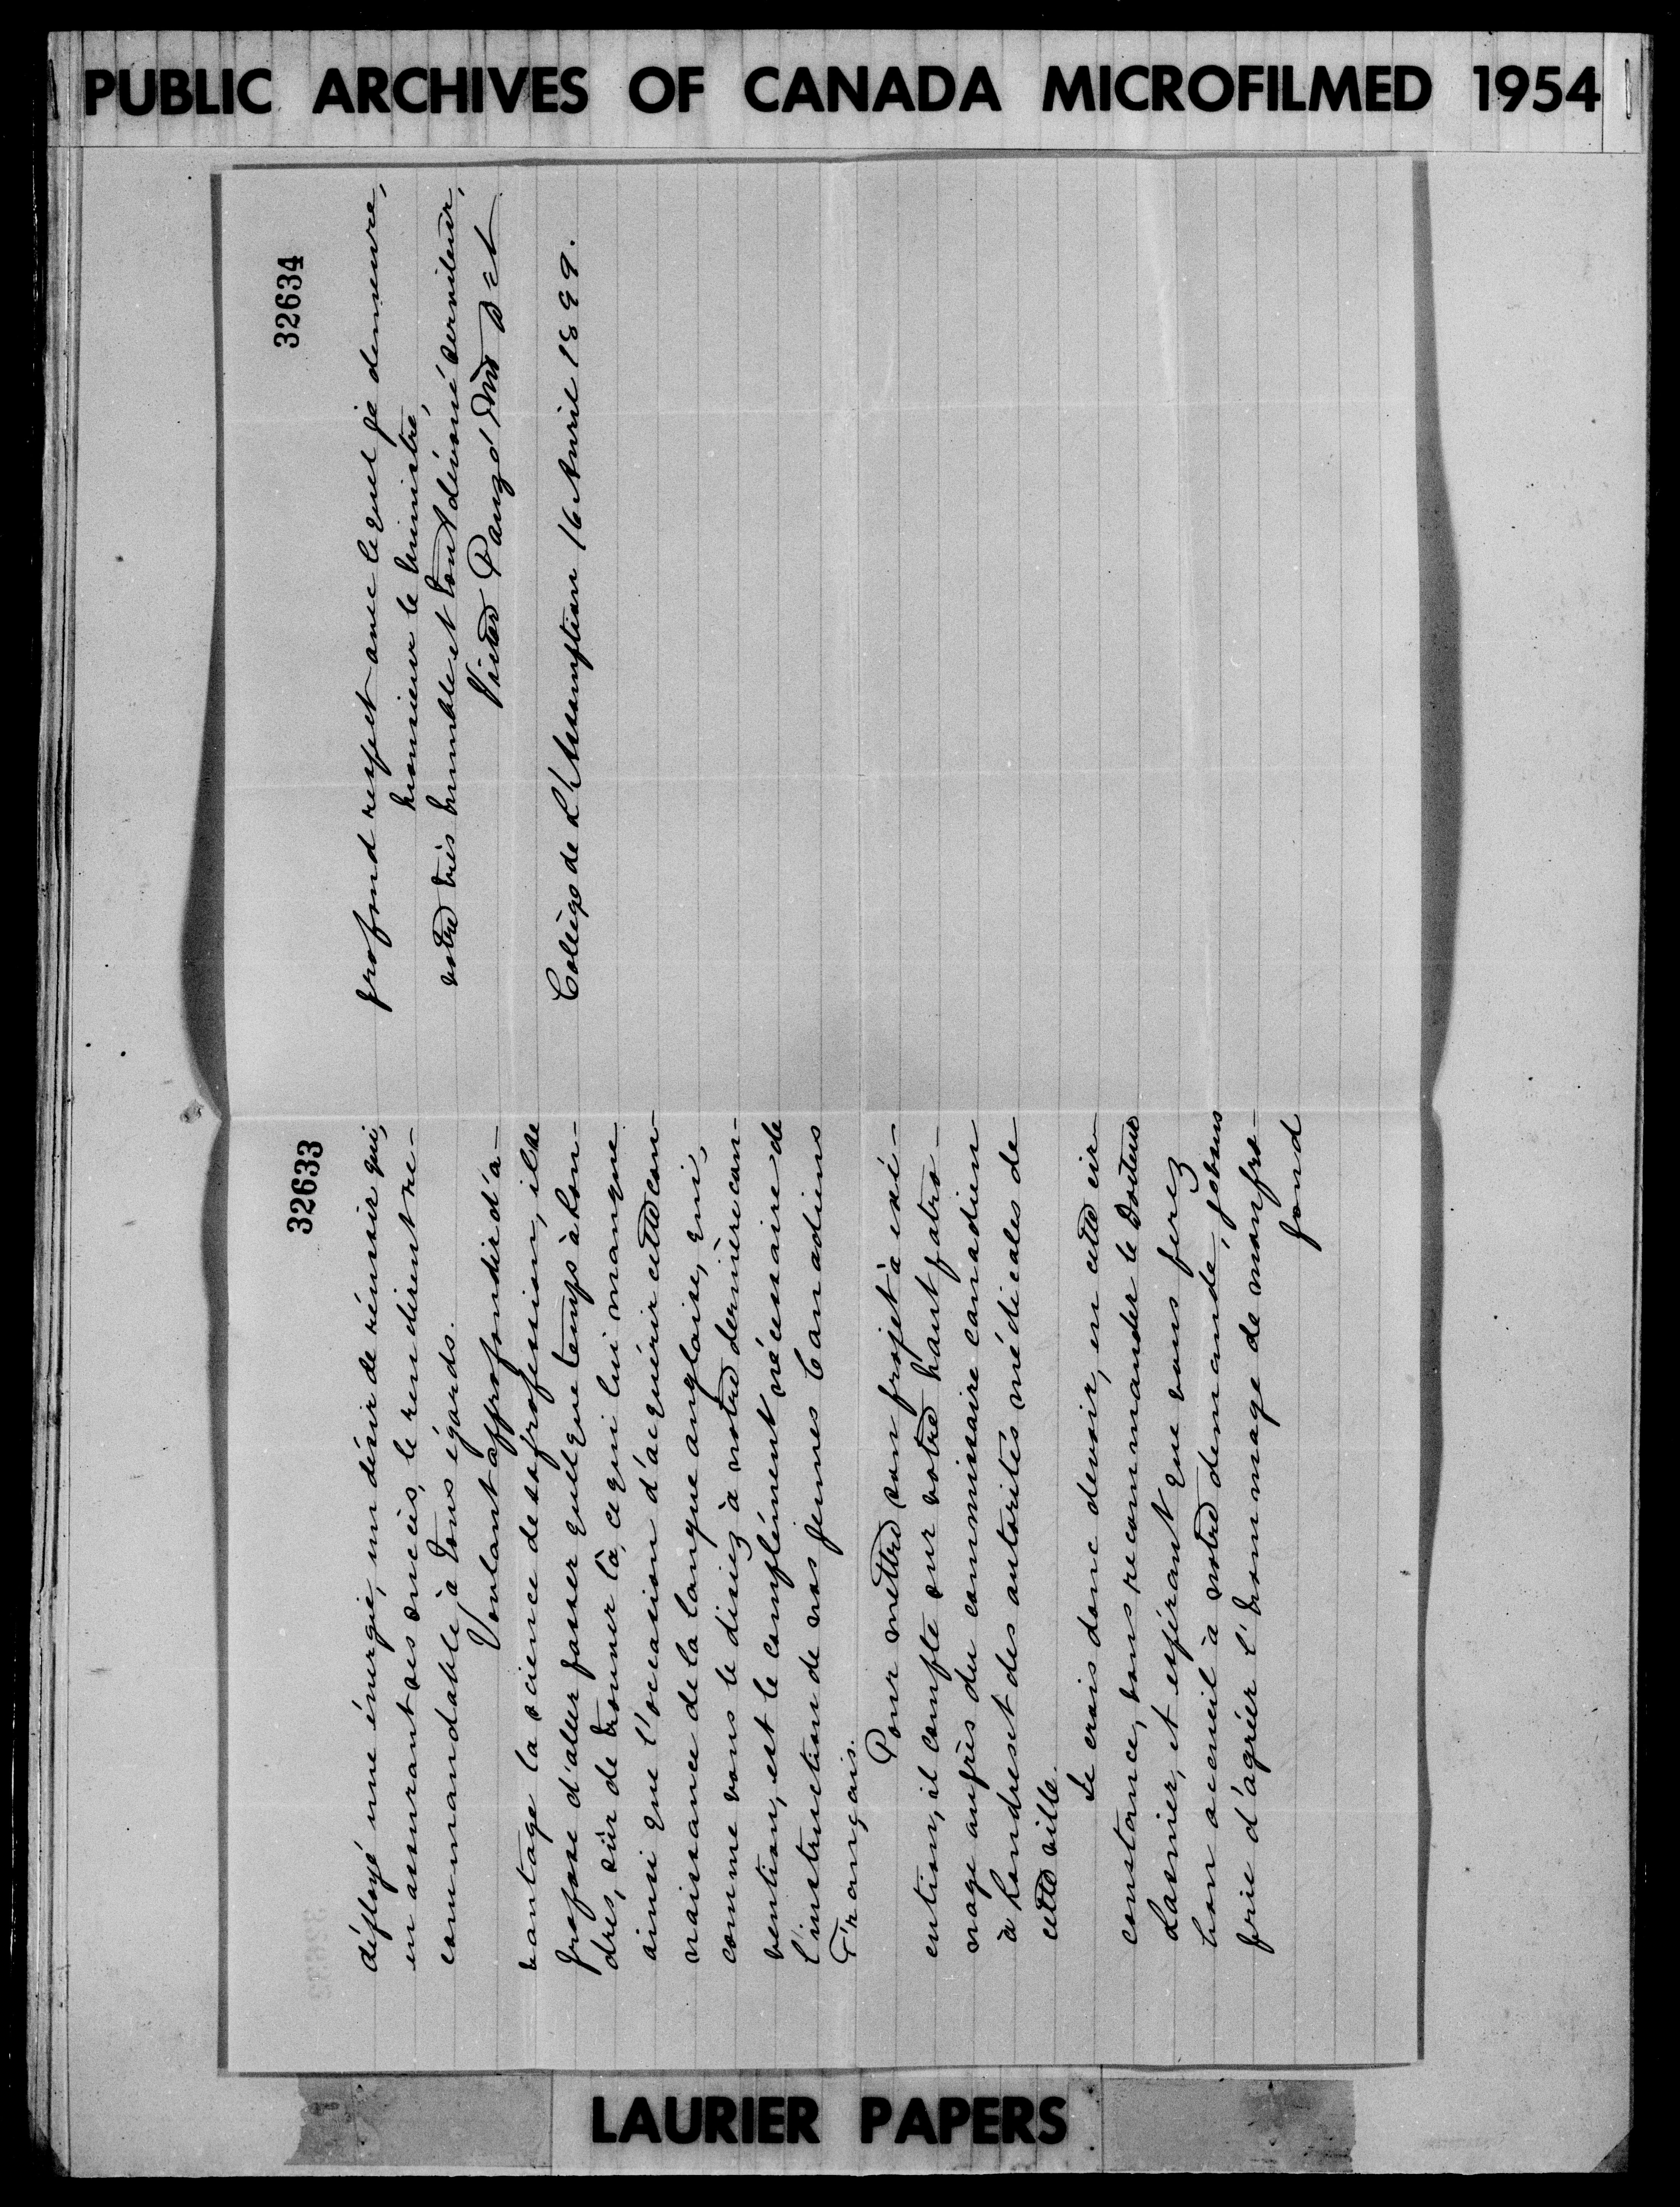 PUBLIC ARCHIVES OF CANADA MICROFILMED 1954
32633
déployé une énergie, un désir de réussir qui,
en assurant ses succès, le rendirent re-
commandable à tous égards.
Voulant approfondir d'a-
vantage la science de sa profession, il se
propose d'aller passer quelque temps à Lon-
dres, sûr de trouver là, ce qui lui manque
ainsi que l'occasion d'acquérir cette con-
naissance de la langue anglaise, qui,
comme vous le disiez à notre dernière con-
vention, est le complément nécessaire de
l'instruction de nos jeunes Canadiens
Français.
Pour mettre son projet à exé-
cution, il compte sur votre haut patro-
nage auprès du commissaire canadien
à Londres et des autorités médicales de
cette ville.
Je crois donc devoir, en cette cir-
constance, vous recommander le Docteur
Lasnier, et espérant que vous ferez
bon accueil à notre demande, je vous
prie d'agréer l'hommage de mon pro-
fond
32634
profond respect avec lequel je demeure,
monsieur le ministre,
votre très humble et tout dévoué serviteur,
Victor Pauzé Ptre
Collège de L'Assomption 16 Avril 1899.
LAURIER PAPERS